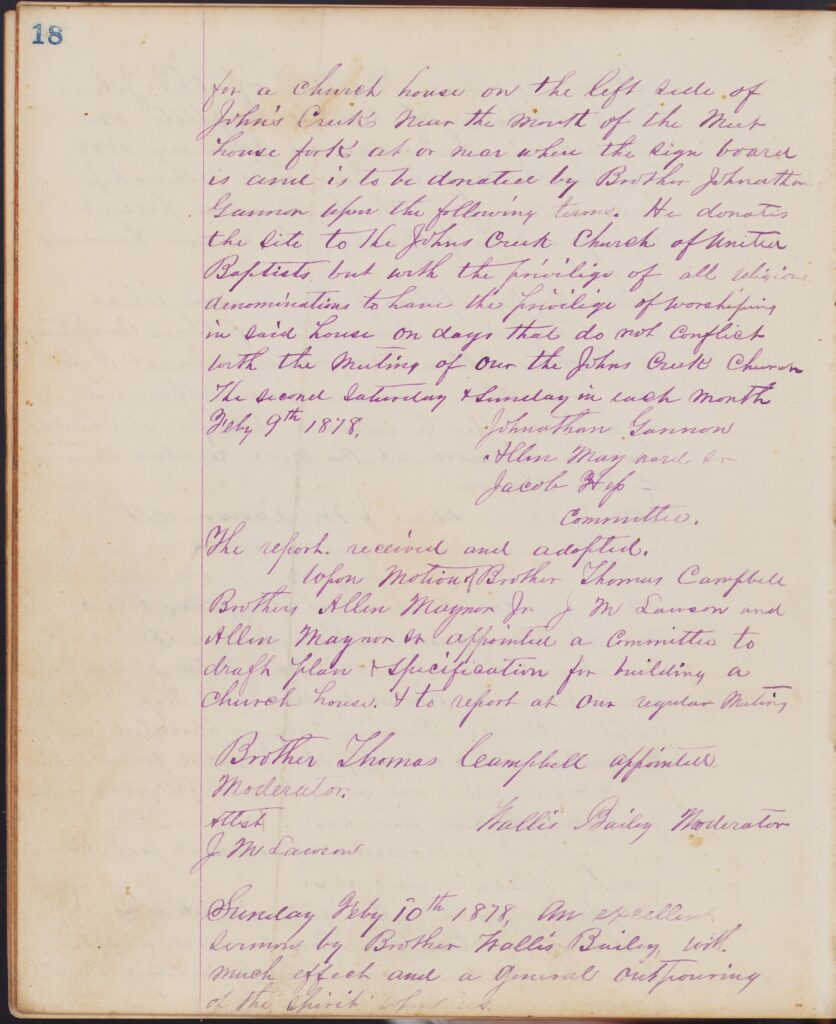 18
for a church house on the left side of
John's Creek Near the mouth of the Meet
house fork at or near where the sign board
is and is to be donated by Brother Johnathan
Gannon upon the following terms. He donates
the site to the Johns Creek Church of United
Baptists but with the privilige of all religious
denominations to have the privilige of worshiping
in said house on days that do not conflict
with the Meeting of our the Johns Creek Church
The second Saturday & Sunday in each month
Feby 9th 1878, Johnathan Gannon
Allen Maynard Sr
Jacob Hess
Committee.
The report. received and adopted.
Upon Motion of Brother Thomas Campbell
Brothers Allen Maynor Jr J M Lawson and
Allen Maynor Sr appointed a Committee to
draft plan & specification for building a
church house. & to report at our regular Meeting
Brother Thomas Campbell appointed
Moderator.
Attest Wallis Bailey Moderator
J M Lawson
Sunday Feby 10th 1878, An excellent
sermon by Brother Wallis Bailey with
much effect and a general outpouring
of the spirit